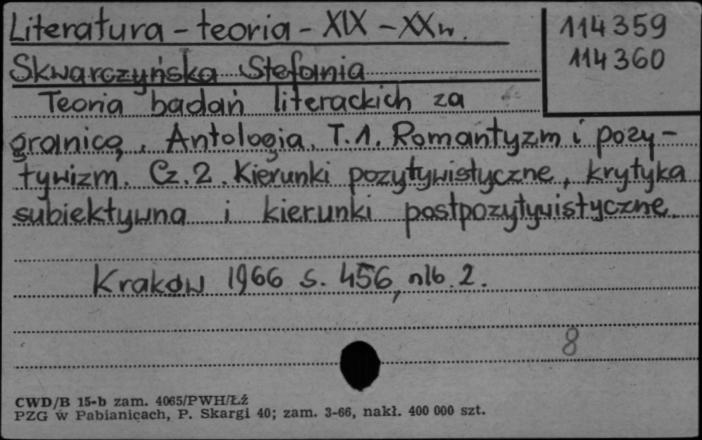 Literatura - teoria - XIX - XX w.
114 359
114 360
Skwarczyńska Stefania
Teoria badań literackich za
granicą. Antologia. T.1. Romantyzm i pozy-
tywizm. Cz. 2. Kierunki pozytywistyczne, krytyka
subiektywna i kierunki postpozytywistyczne.
Kraków 1966 s. 456, nlb. 2.
8
CWD/B 15-b zam. 4065/PWH/Łź
PZG w Pabianicach, P. Skargi 40; zam. 3-66, nakł. 400 000 szt.